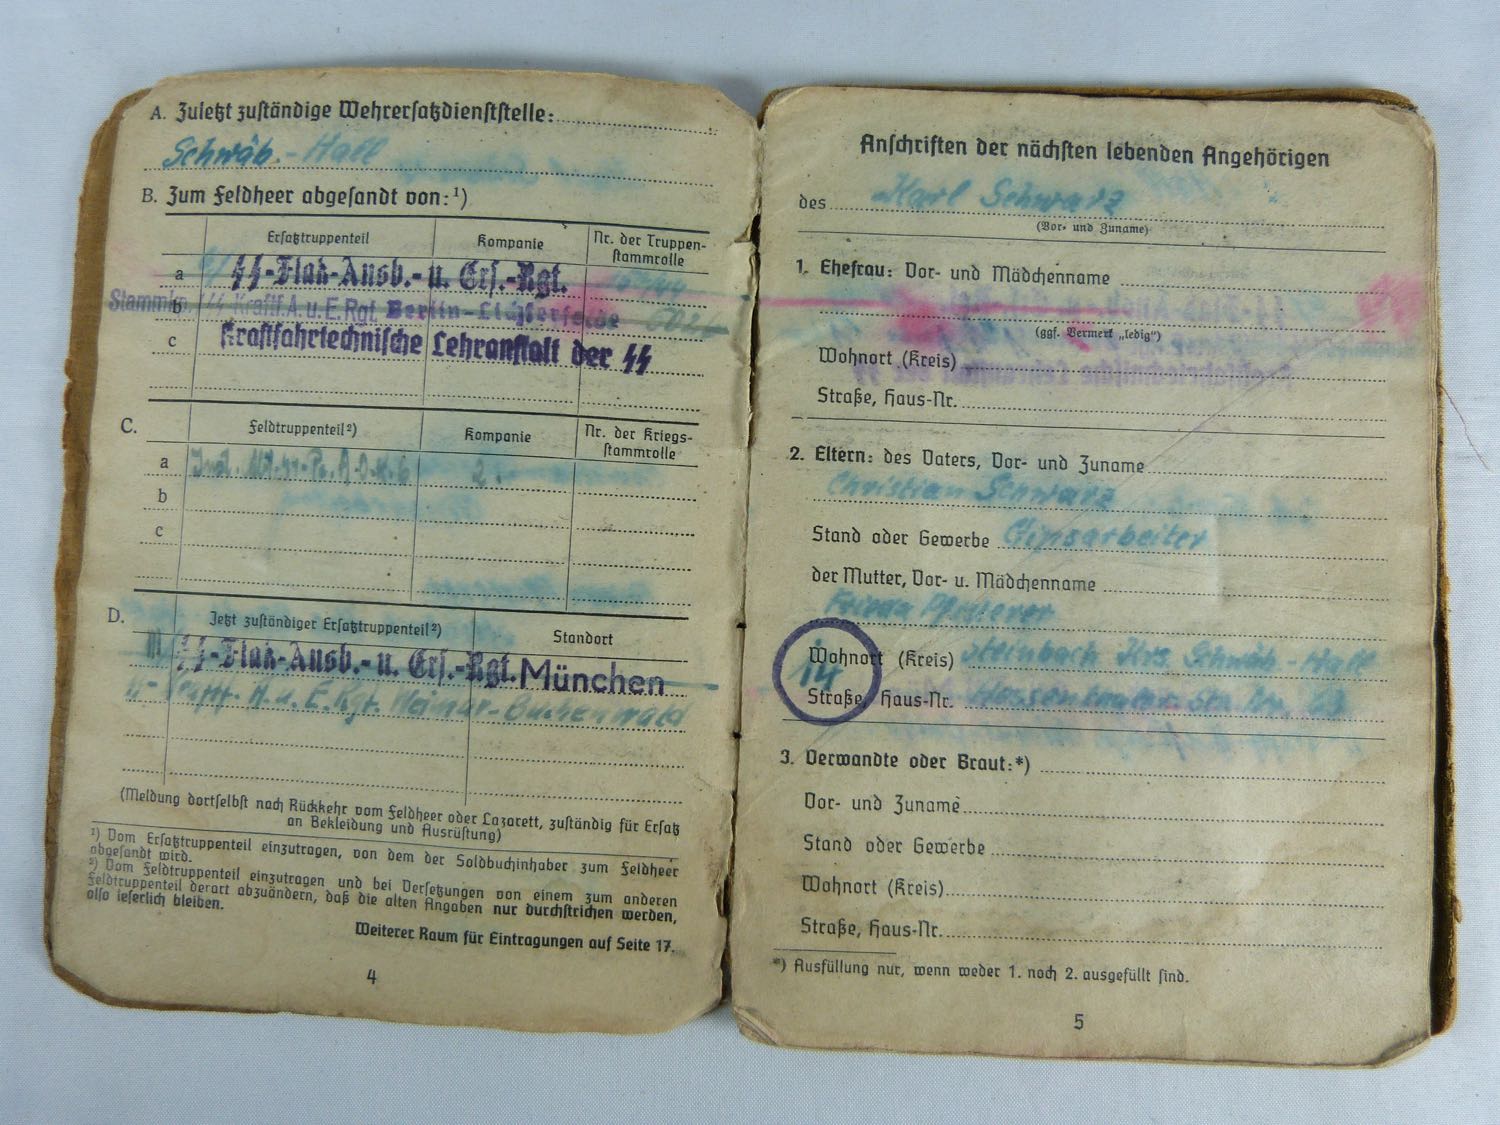 A. Zuletzt zuständige Wehrersatzdienststelle:
Schwäb.-Hall
B. Zum Feldheer abgesandt von:¹)
Ersatztruppenteil Kompanie Nr. der Truppen-
stammrolle
a SS-Flak-Ausb.- u. Ers.-Rgt.
b Stammkp. SS Kraftf. A. u. E. Rgt. Berlin-Lichterfelde
c Kraftfahrtechnische Lehranstalt der SS
C. Feldtruppenteil²) Kompanie Nr. der Kriegs-
stammrolle
a 2.
b
c
D. Jetzt zuständiger Ersatztruppenteil²) Standort
III SS-Flak-Ausb.- u. Ers.-Rgt. München
A. u. E. Rgt. Weimar-Buchenwald
(Meldung dortselbst nach Rückkehr vom Feldheer oder Lazarett, zuständig für Ersatz
an Bekleidung und Ausrüstung)
¹) Vom Ersatztruppenteil einzutragen, von dem der Soldbuchinhaber zum Feldheer
abgesandt wird.
²) Vom Feldtruppenteil einzutragen und bei Versetzungen von einem zum anderen
Feldtruppenteil derart abzuändern, daß die alten Angaben nur durchstrichen werden,
also leserlich bleiben.
Weiterer Raum für Eintragungen auf Seite 17.
4
Anschriften der nächsten lebenden Angehörigen
des Karl Schwarz
(Vor- und Zuname)
1. Ehefrau: Vor- und Mädchenname
(ggf. Vermerk „ledig")
Wohnort (Kreis)
Straße, Haus-Nr.
2. Eltern: des Vaters, Vor- und Zuname
Christian Schwarz
Stand oder Gewerbe Gipsarbeiter
der Mutter, Vor- u. Mädchenname
Frieda
Wohnort (Kreis) Steinbach Krs. Schwäb-Hall
14
Straße, Haus-Nr. Str. Nr.
3. Verwandte oder Braut:*)
Vor- und Zuname
Stand oder Gewerbe
Wohnort (Kreis)
Straße, Haus-Nr.
*) Ausfüllung nur, wenn weder 1. noch 2. ausgefüllt sind.
5